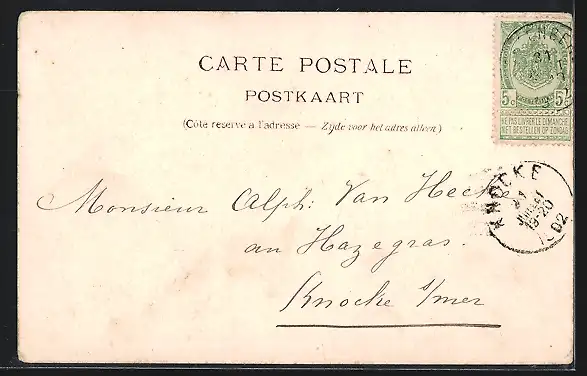 CARTE POSTALE
POSTKAART
(Côte reservé a l'adresse — Zijde voor het adres alleen)
5c 5c
NE PAS LIVRER LE DIMANCHE
NIET BESTELLEN OP ZONDAG
KNOCKE
19-20
1902
Monsieur Alph: Van Hecke
an Hazegras.
Knocke s/mer